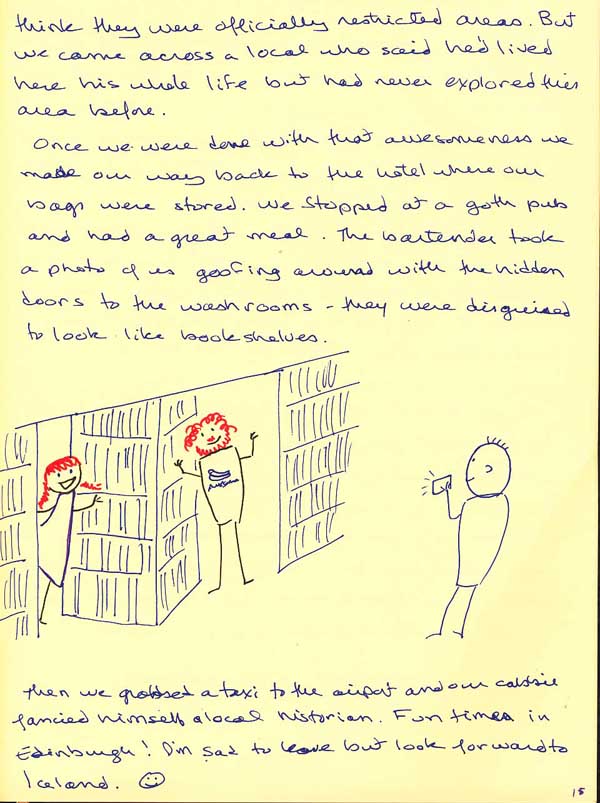 think they were officially restricted areas. But
we came across a local who said he'd lived
here his whole life but had never explored this
area before.
Once we were done with that awesomeness we
made our way back to the hotel where our
bags were stored. We stopped at a goth pub
and had a great meal. The bartender took
a photo of us goofing around with the hidden
doors to the washrooms - they were disguised
to look like bookshelves.
Then we grabbed a taxi to the airport and our cabbie
fancied himself a local historian. Fun times in
Edinburgh! I'm sad to leave but look forward to
Iceland. ☺
15